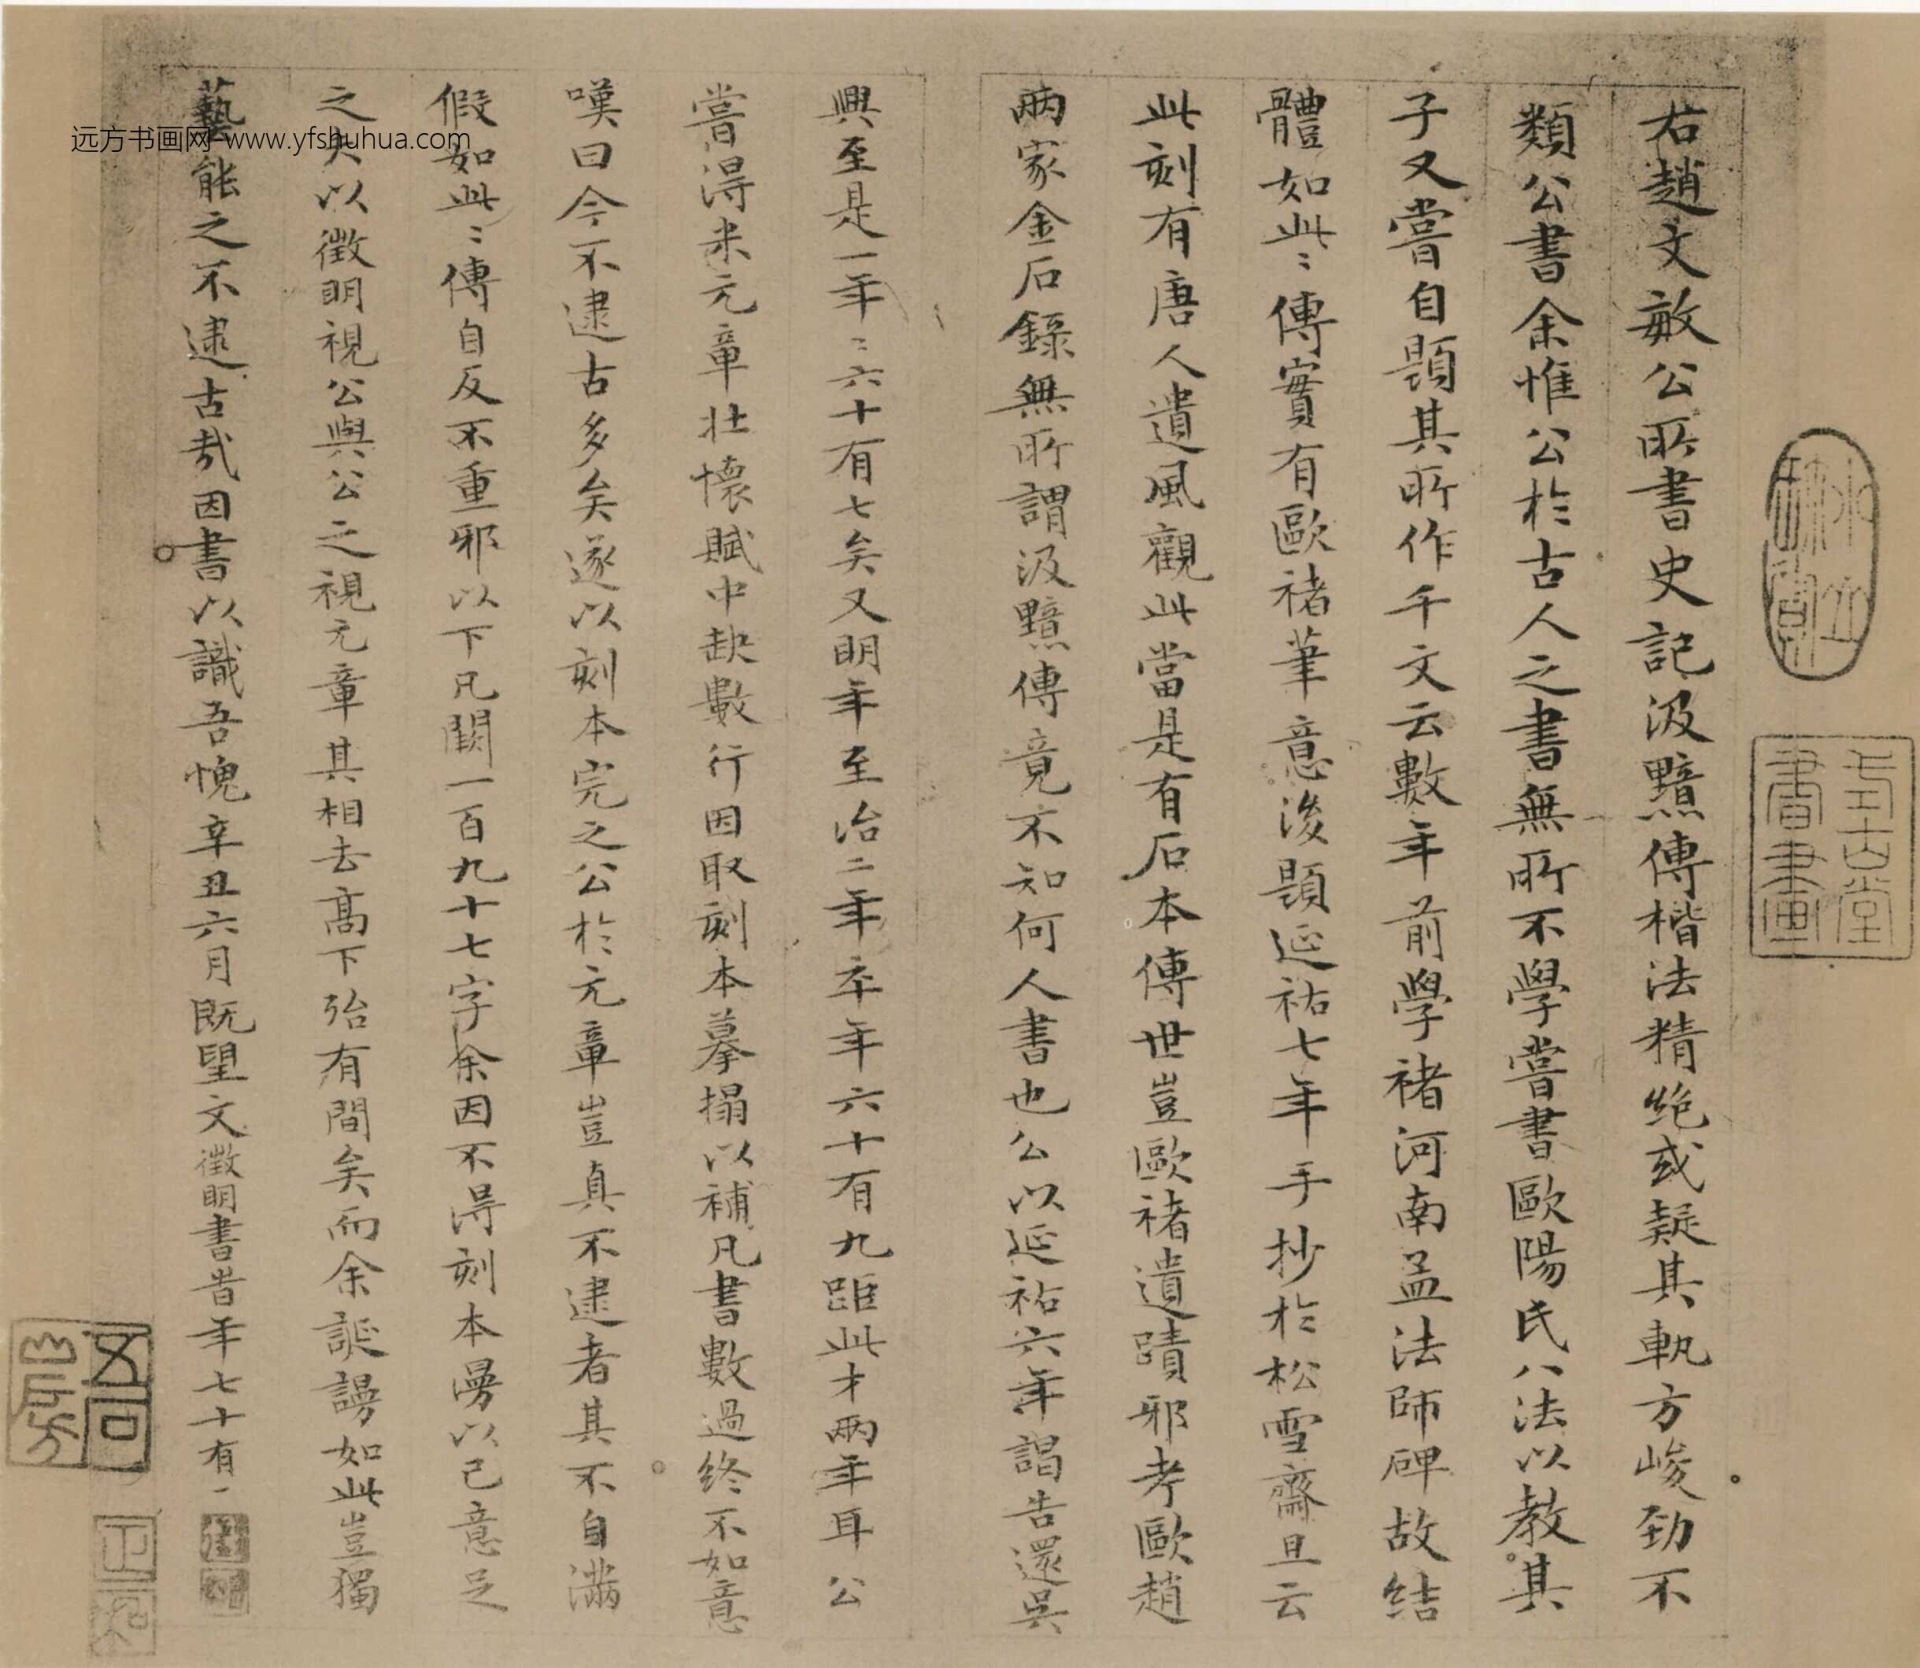 右趙文敏公所書史記汲黯傳楷法精絶或疑其軌方峻勁不
類公書余惟公於古人之書無所不學嘗書歐陽氏八法以教其
子又嘗自題其所作千文云數年前學褚河南孟法師碑故結
體如此〻傳實有歐褚筆意後題延祐七年手抄於松雪齋且云
此刻有唐人遺風觀此當是有石本傳世豈歐褚遺蹟邪考歐趙
兩家金石錄無所謂汲黯傳竟不知何人書也公以延祐六年謁告還吳
興至是一年〻六十有七矣又明年至治二年卒年六十有九距此才兩年耳公
嘗得米元章壯懷賦中缺數行因取刻本摹搨以補凡書數過終不如意
嘆曰今不逮古多矣遂以刻本完之公於元章豈真不逮者其不自滿
假如此〻傳自反不重邪以下凡闕一百九十七字余因不得刻本漫以己意足
之夫以徵明視公與公之視元章其相去高下殆有間矣而余誕謾如此豈獨
藝能之不逮古哉因書以識吾愧辛丑六月既望文徵明書昔年七十有二
式古堂書畫
吾同山房
远方书画网 www.yfshuhua.com